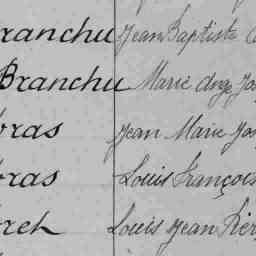 ranchu Jean Baptiste
Branchu Marie Ange
bras Jean Marie Jos
bras Louis François
bret Louis Jean Pier